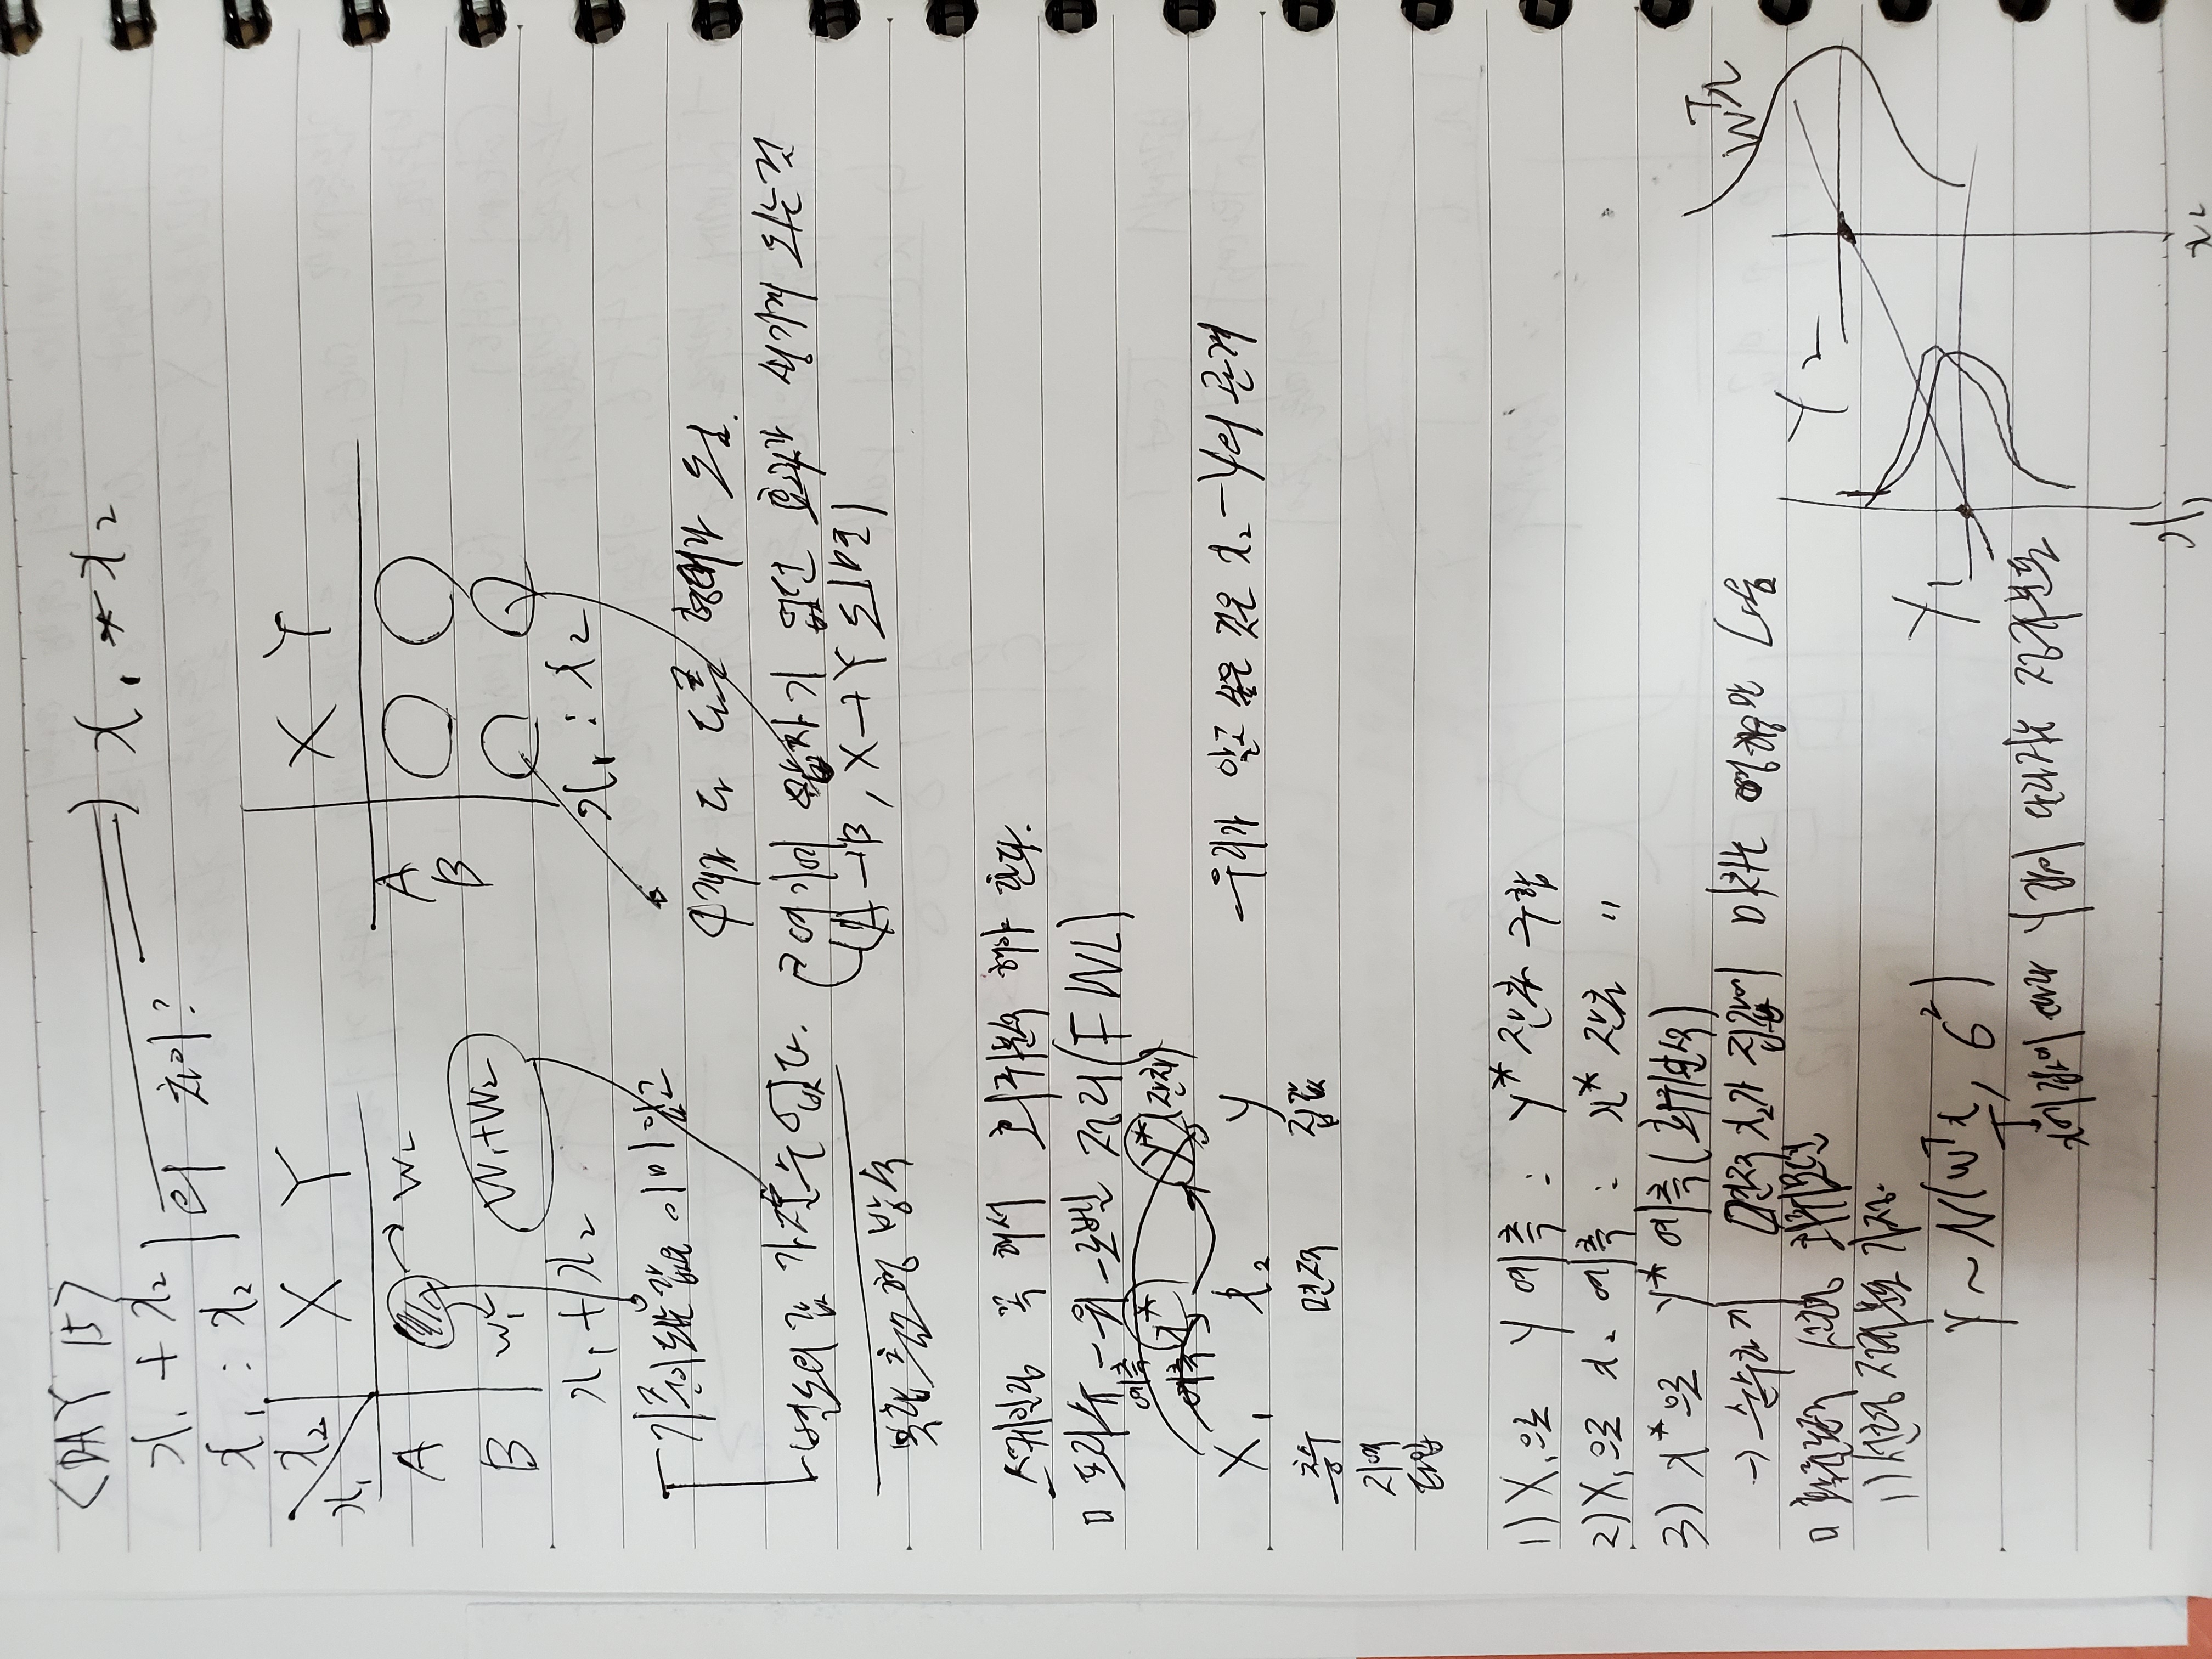 <DAY 15>
x₁ + x₂
x₁ : x₂
의 차이?
x₁ * x₂
x₂ X Y
x₁
A W₂
B W₁ W₁+W₂
x₁ + x₂
X Y
A
B
x₁ : x₂
기준이 되는 값은 이미 있고
별도의 값 가질 수 없다.
4개가 다 다른 형태가 됨.
여기에 갑자기 없던 효과가 생기게 되는것
(A→B, X→Y 되면)
방식
스케일링 꼭 해서 회귀분석 해야 한다.
□ 프리슈-워-로벨 정리(FWL)
예측
예측 x* y* (잔차)
X₁ x₂ y
우리가 알고 싶은 것은 x₂-y의 관계
층수 면적 집값
지역
타입
1) X₁으로 Y 예측 : Y* 잔차 구함
2) X₁으로 x₂ 예측 : x* 잔차 "
3) x*으로 Y* 예측(회귀분석)
→ 순수하게 면적 x₂가 집값에 미치는 영향만 남음
□ 확률론적 선형 회귀모델
1) 선형 정규분포 가정.
Y ~ N(wᵀx, 6²)
x에 값에 따라 Y값이 달라지는 정규분포
wᵀx
Y₂
Y₁
x₁ x₂